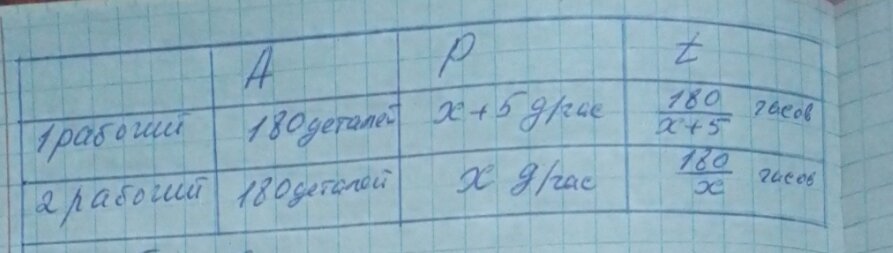 A P t
1 рабочий 180 деталей x+5 д/час 180/x+5 часов
2 рабочий 180 деталей x д/час 180/x часов